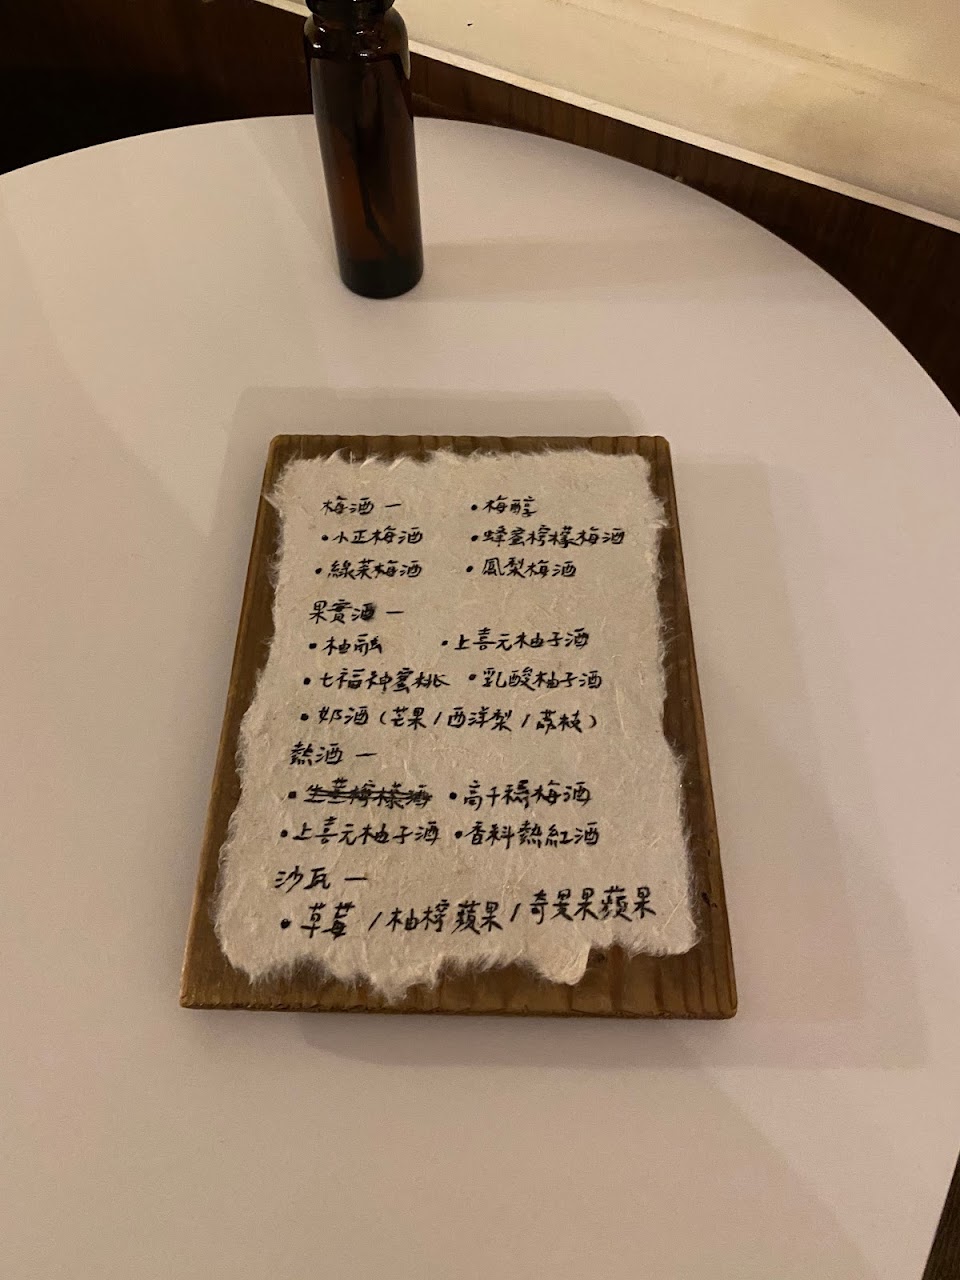 梅酒一 •梅醇
•小正梅酒 •蜂蜜檸檬梅酒
•綠茶梅酒 •鳳梨梅酒
果實酒一
•柚融 •上喜元柚子酒
•七福神蜜桃 •乳酸柚子酒
•奶酒(芒果/西洋梨/荔枝)
熱酒一
•生薑檸檬酒 •高千穗梅酒
•上喜元柚子酒 •香料熱紅酒
沙瓦一
•草莓 /柚檸蘋果/奇異果蘋果